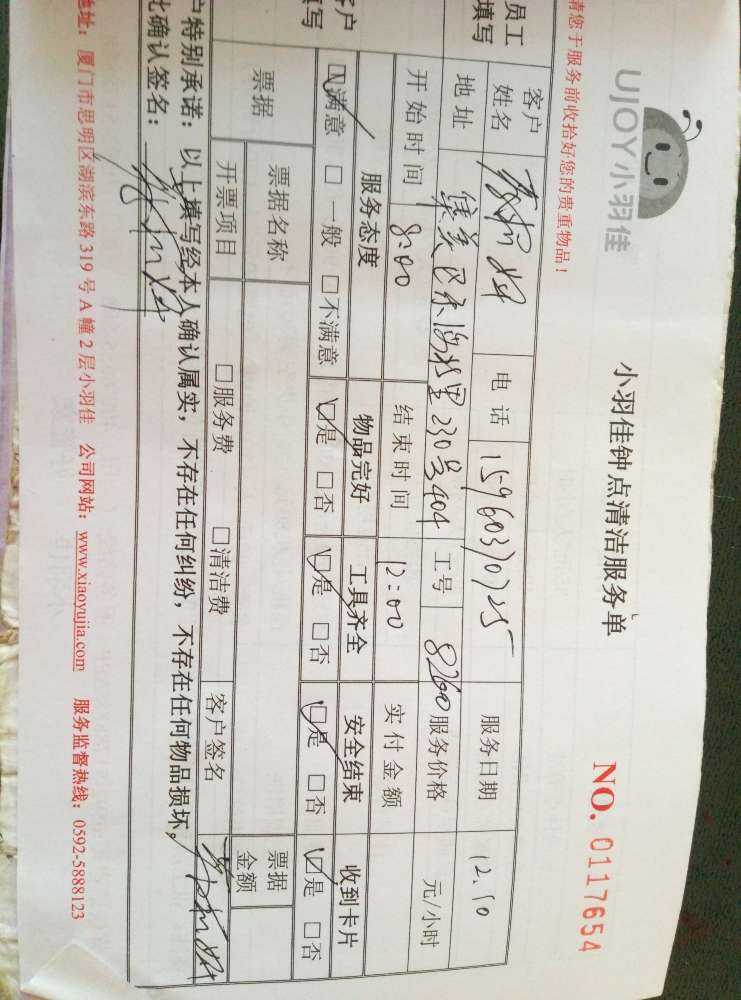 UJOY小羽佳
小羽佳钟点清洁服务单
NO. 0117654
请您于服务前收拾好您的贵重物品！
员工
填写
客户
姓名
电话
15960370725
服务日期
12.10
地址
230号404
工号
8260
服务价格
元/小时
开始时间
8:00
结束时间
12:00
实付金额
客户
填写
服务态度
物品完好
工具齐全
安全结束
收到卡片
☑满意 □一般 □不满意
☑是 □否
☑是 □否
☑是 □否
☑是 □否
票据
票据名称
票据
金额
开票项目
□服务费 □清洁费
客户签名
户特别承诺：以上填写经本人确认属实，不存在任何纠纷，不存在任何物品损坏，
此确认签名：
地址：厦门市思明区湖滨东路319号A幢2层小羽佳 公司网站：www.xiaoyujia.com 服务监督热线：0592-5888123